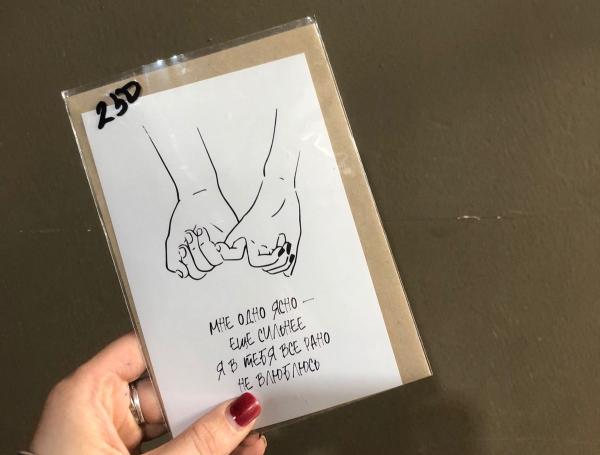 250
МНЕ ОДНО ЯСНО –
ЕЩЕ СИЛЬНЕЕ
Я В ТЕБЯ ВСЕ РАНО
НЕ ВЛЮБЛЮСЬ